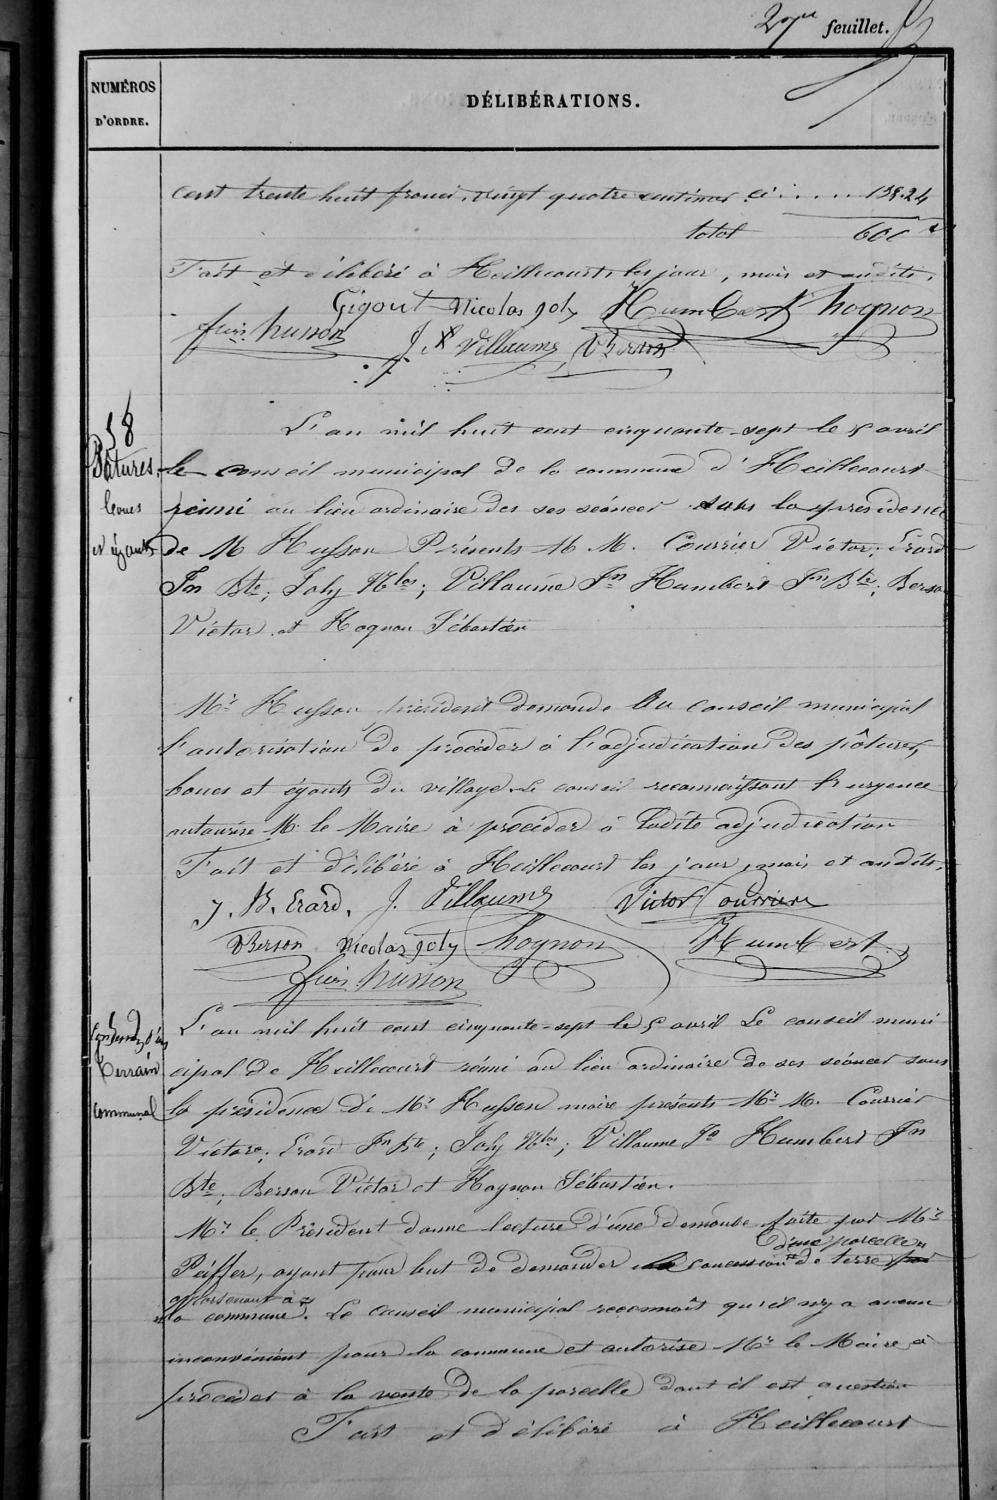 27me feuillet.
NUMÉROS
D'ORDRE.
DÉLIBÉRATIONS.
cent trente huit francs vingt quatre centimes ci . . . . . 138.24
total 600
Fait et délibéré à Heillecourt les jour, mois et an dits.
Gigout Nicolas joly Humbert hognon
husson J. Villaume VBerson
58
Pâtures
boues
et égouts
L'an mil huit cent cinquante-sept le 5 avril
le conseil municipal de la commune d'Heillecourt
réuni au lieu ordinaire des ses séances sous la présidence
de M Husson Présents M M. Courrier Victor; Erard
Jn Bte; Joly Nlas; Villaume Jn Humbert Jn Bte; Berson
Victor et Hognon Sébastien
Mr Husson président demande Au conseil municipal
l'autorisation de procéder à l'adjudication des pâtures,
boues et égouts du village. Le conseil reconnaissant l'urgence
autorise Mr le Maire à procéder à ladite adjudication
Fait et délibéré à Heillecourt les jour, mois et an dits,
J. B. Erard. J. Villaume Victor Courrier
VBerson Nicolas joly hognon Humbert
husson
terrain
communal
L'an mil huit cent cinquante-sept le 5 avril Le conseil muni
cipal de Heillecourt réuni au lieu ordinaire de ses séances sous
la présidence de Mr Husson maire présents Mr M. Courrier
Victore; Erard Jn Bte; Joly Nlas; Villaume Jn Humbert Jn
Bte; Berson Victor et Hognon Sébastien.
Mr le Président donne lecture d'une demande faite par Mr
d'une parcelle
Peiffer, ayant pour but de demander concession de terre
appartenant à
la commune. Le conseil municipal reconnaît qu'il n'y a aucun
inconvénient pour la commune et autorise Mr le Maire à
procéder à la vente de la parcelle dont il est question
Fait et délibéré à Heillecourt